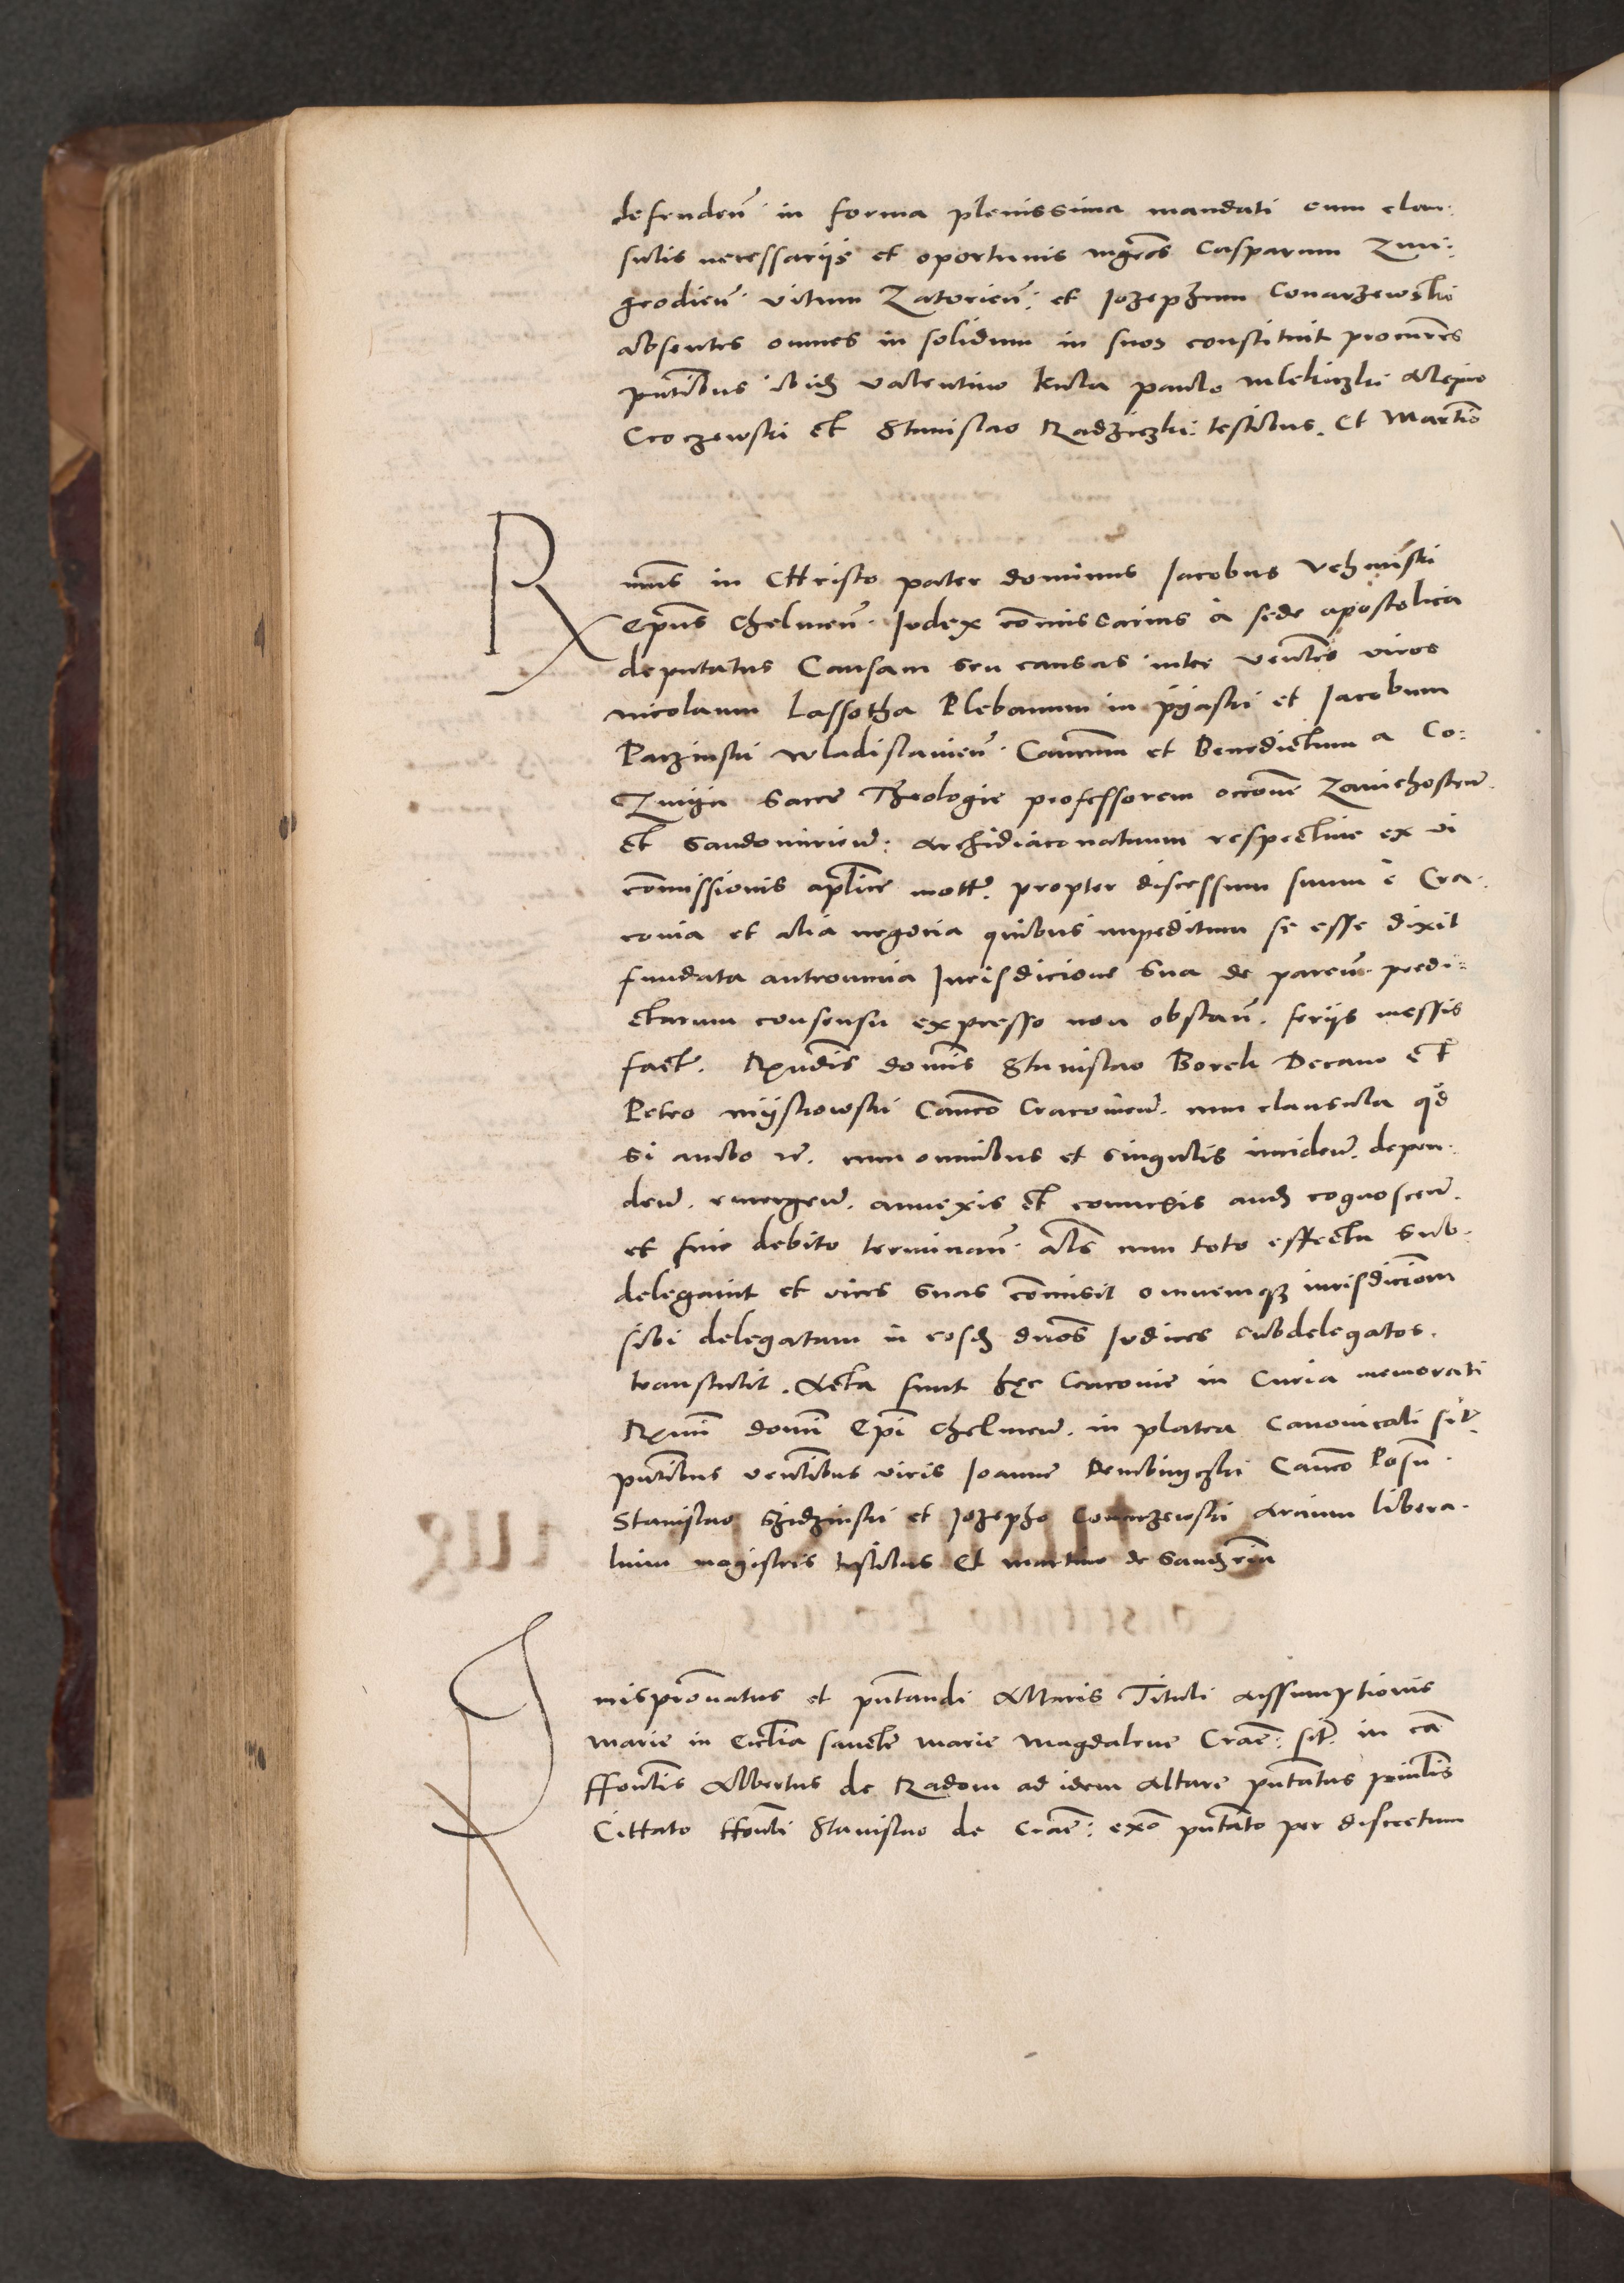 defenden̄ in forma plenissima mandati cum clau:
sulis necessarijs et oportunis mgrōs Casparum Zwi:
grodien̄ vitum Zatorien̄: et Jozephum Conarzewski
absentes omnes in solidum in suos constituit procurēs
pn̄tibus ibid̄ valentino kula paulo mlekiczki Alepio
Croczewski et Stanislao Radziczki testibus. Et Martīo
Rmus in CHristo pater dominus Jacobus Vchański
Ep̄us Chelmen̄. Judex com̄issarius à sede apostolica
deputatus Causam seu causas inter ven̄les viros
nicolaum Lassotha Plebanum in pijaski et Jacobum
Parzinski wladislauien̄. Canc̄um et Benedictum a Co:
Zmijn Sacre Theologie professorem occōne Zawichosten̄.
et Sandomirien̄: Archidiaconatuum respectiue ex vi
com̄issionis ap̄lice mott̄. propter discessum suum è Cra:
couia et alia negocia quibus impeditum se esse dixit
fundata autem omnia Jurisdicione sua de parciū. predi:
ctarum consensu expresso non obstan̄. ferijs messis
fact̄. Rn̄dis dom̄is Stanislao Borek Decano et
Petro mijskowski Can̄co Cracouien̄. cum clausula qd̄
si ambo rc̄. cum omnibus et singulis inciden̄. depen:
den̄. emergen̄. annexis et connexis aud̄ cognoscen̄.
et fine debito terminan̄. al̄s cum toto effectu sub:
delegauit et vices suas com̄isit omnemqz iurisdiciōem
sibi delegatam in eosd̄ dn̄os Judices subdelegatos.
transtulit. Acta sunt hęc Cracouie in Curia memorati
Rmi domi Ep̄i Chelmen̄. in platea Canonicali sit̄.
pn̄tibus ven̄libus viris Joanne Dembinyczki Can̄co Posn̄.
Stanislao Szidzinski et Jozepho Conarzewski Arcium libera:
lium magistris testibus Et martino de Sandz̄ria
Jurispron̄atus et pn̄tandi Altaris Tituli Assumptionis
marie in Ecclīa sancte marie magdalene Crac̄: sit̄. in cā
ffon̄lis Albertus de Radom ad idem altare pn̄tatus prīnlis
Cittato Hon̄li Stanislao de Crac̄: exō pn̄tato per discretum